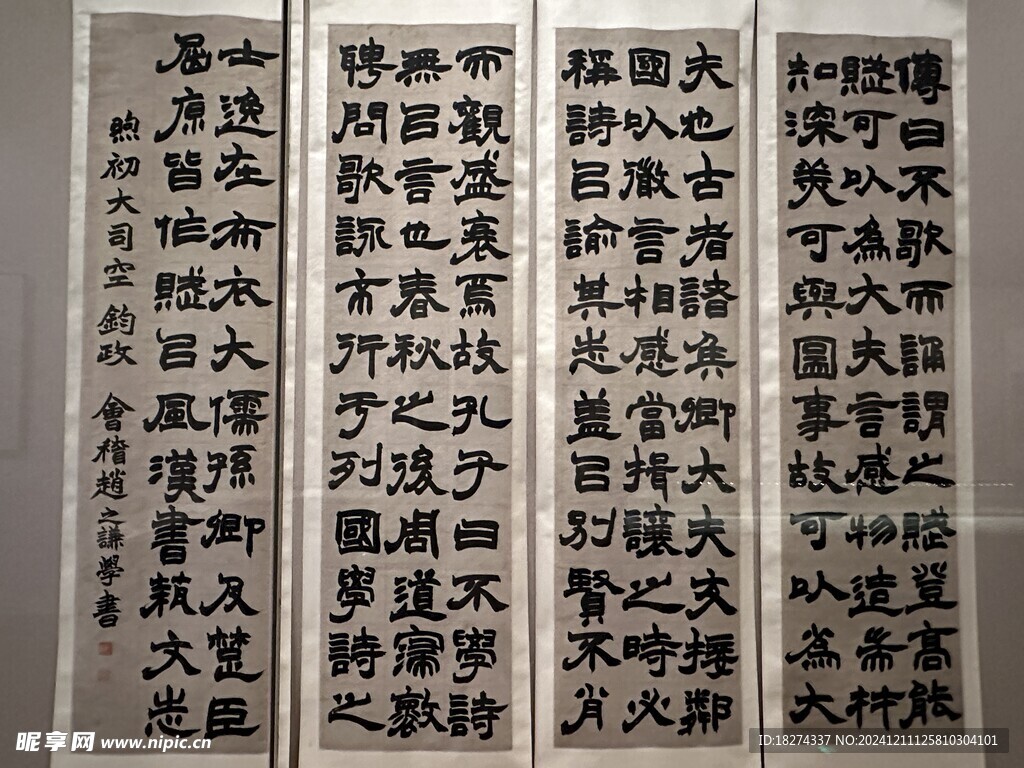 傳曰不歌而誦謂之賦登高能
賦可以為大夫言感物造耑材
知深美可與圖事故可以為大
夫也古者諸矦卿大夫交接鄰
國以微言相感當揖讓之時必
稱詩㠯諭其志蓋㠯別賢不肖
而觀盛衰焉故孔子曰不學詩
無㠯言也春秋之後周道寖壞
聘問歌詠不行于列國學詩之
士逸在布衣大儒孫卿及楚臣
屈原皆作賦㠯風漢書蓺文志
煦初大司空鈞政 會稽趙之謙學書
昵享网 www.nipic.cn
ID:18274337 NO:20241211125810304101